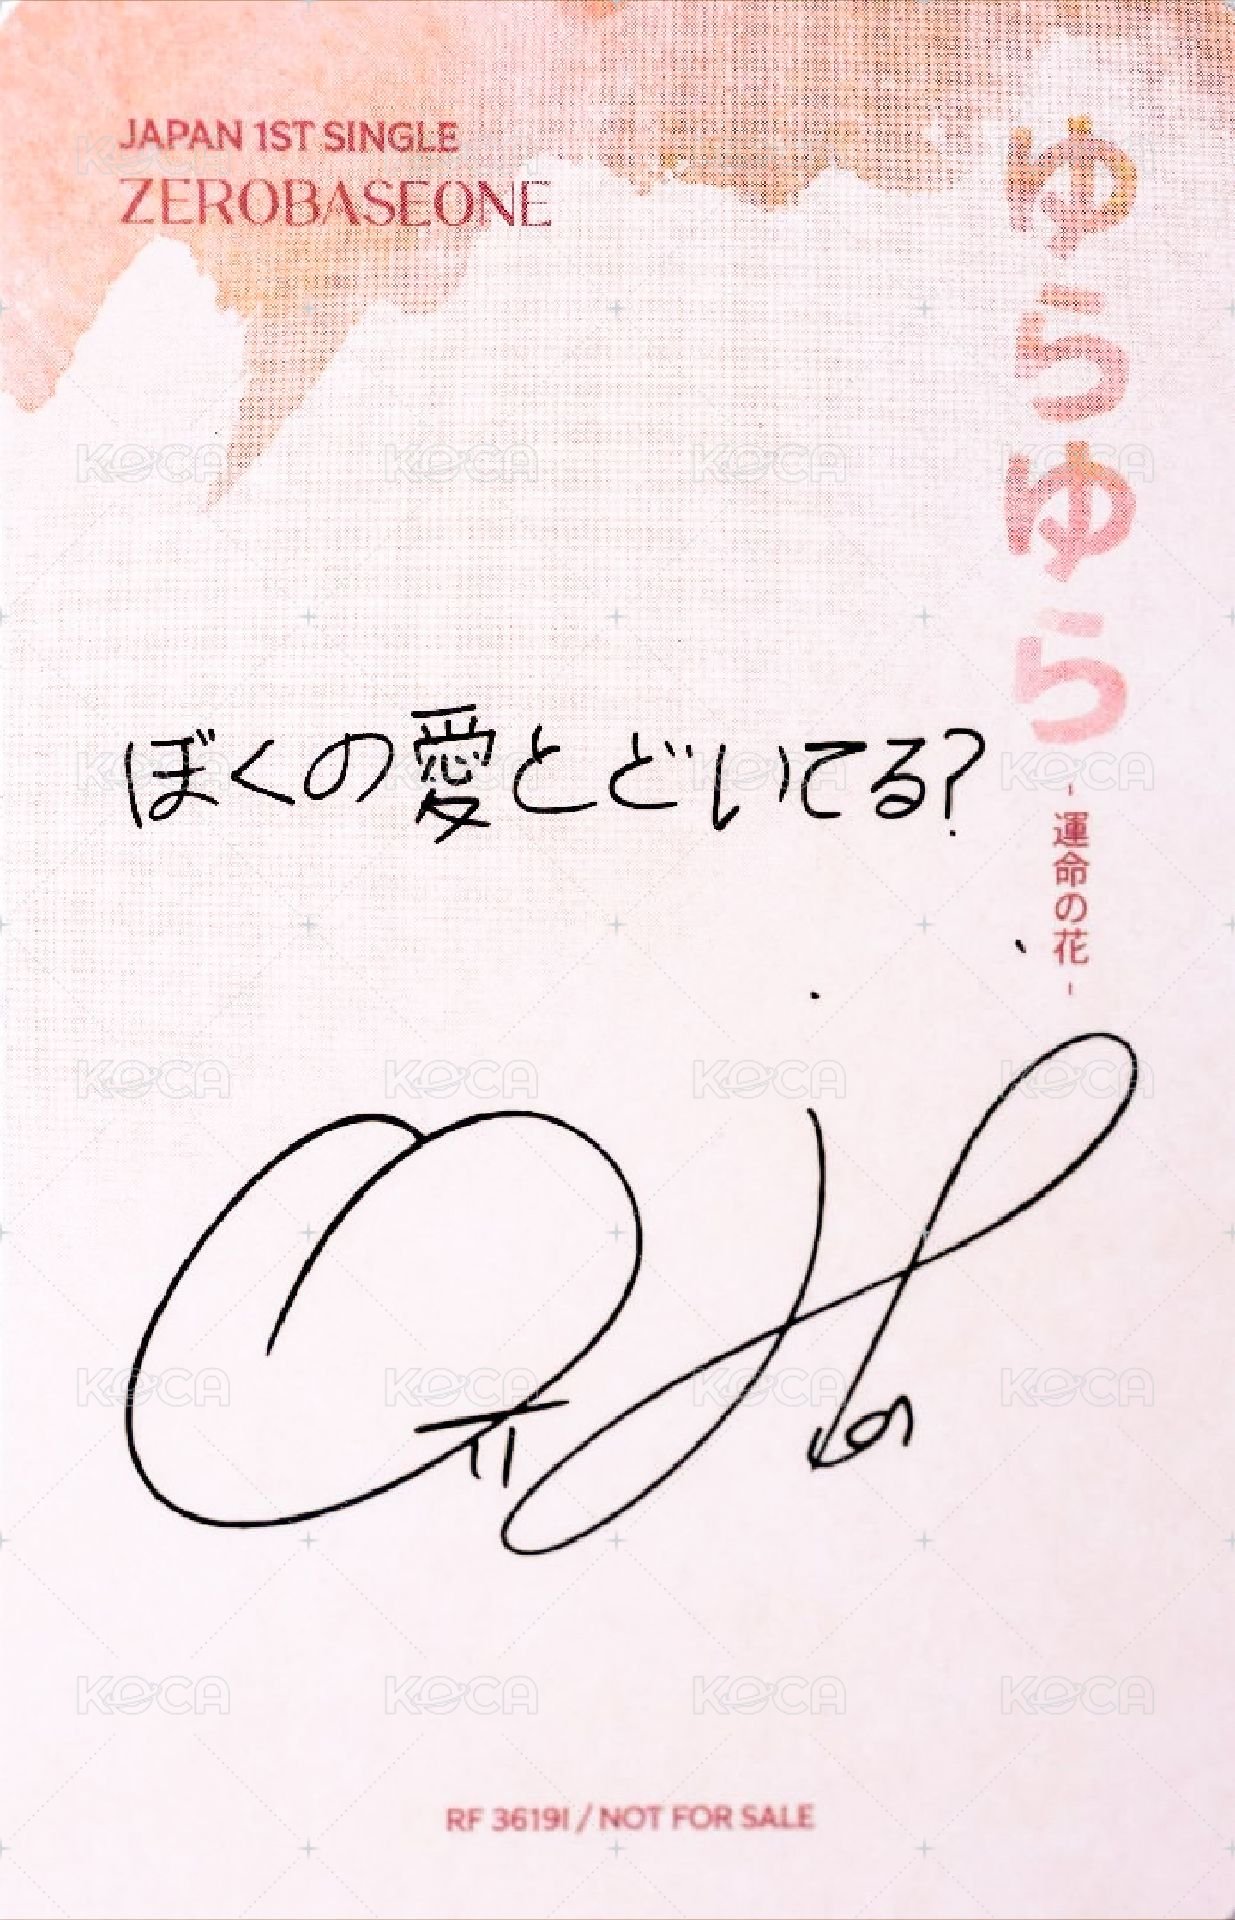 JAPAN 1ST SINGLE
ZEROBASEONE
ゆらゆら
- 運命の花 -
ぼくの愛とどいてる?
RF 36191 / NOT FOR SALE
KOCA